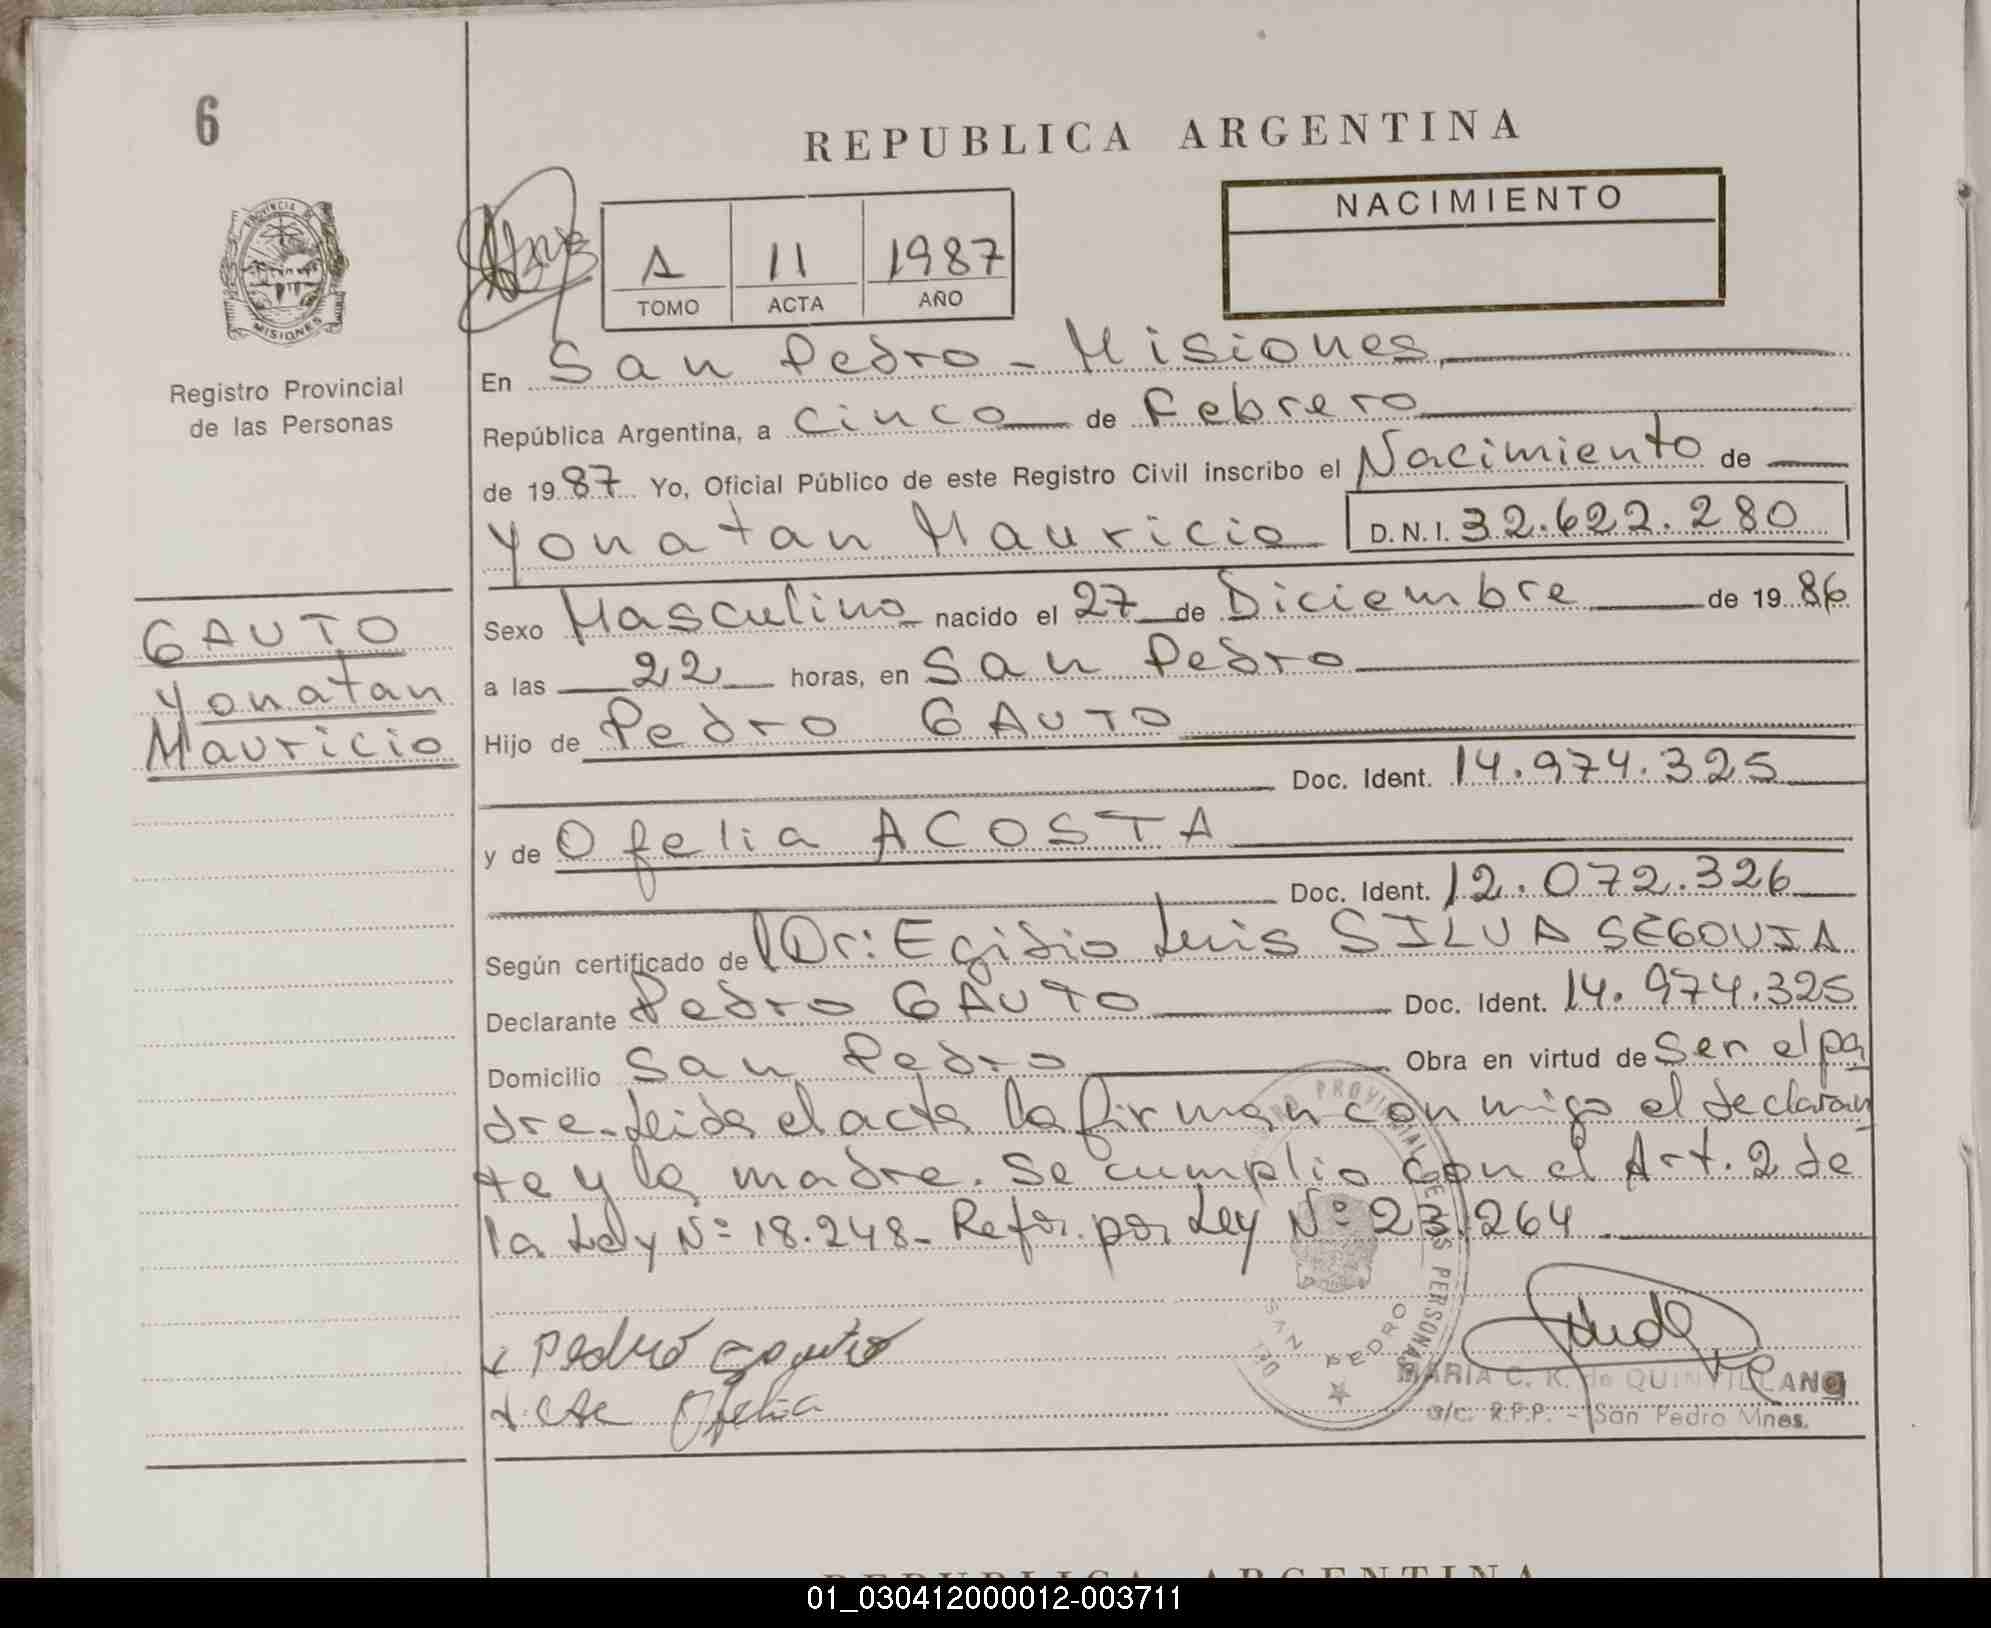 6
REPUBLICA ARGENTINA
NACIMIENTO
A 11 1987
TOMO ACTA AÑO
PROVINCIA DE
MISIONES
Registro Provincial
de las Personas
En San Pedro - Misiones
República Argentina, a cinco de Febrero
de 1987 Yo, Oficial Público de este Registro Civil inscribo el Nacimiento de
Yonatan Mauricio D.N.I. 32.622.280
GAUTO
Yonatan
Mauricio
Sexo Masculino nacido el 27 de Diciembre de 1986
a las 22 horas, en San Pedro
Hijo de Pedro GAUTO
Doc. Ident. 14.974.325
y de Ofelia ACOSTA
Doc. Ident. 12.072.326
Según certificado de Dr: Egidio Luis SILVA SEGOVIA
Declarante Pedro GAUTO Doc. Ident. 14.974.325
Domicilio San Pedro Obra en virtud de Ser el pa
dre. Leida el acta la firman conmigo el declaran
te y la madre. Se cumplio con el Art. 2 de
la Ley Nº 18.248 - Refor. por Ley Nº 23.264
REGISTRO PROVINCIAL DE LAS PERSONAS
SAN PEDRO
Pedro Gauto
Ofelia
MARIA C. K. de QUINTILLANO
a/c. R.P.P. - San Pedro Mnes.
REPUBLICA ARGENTINA
01_030412000012-003711